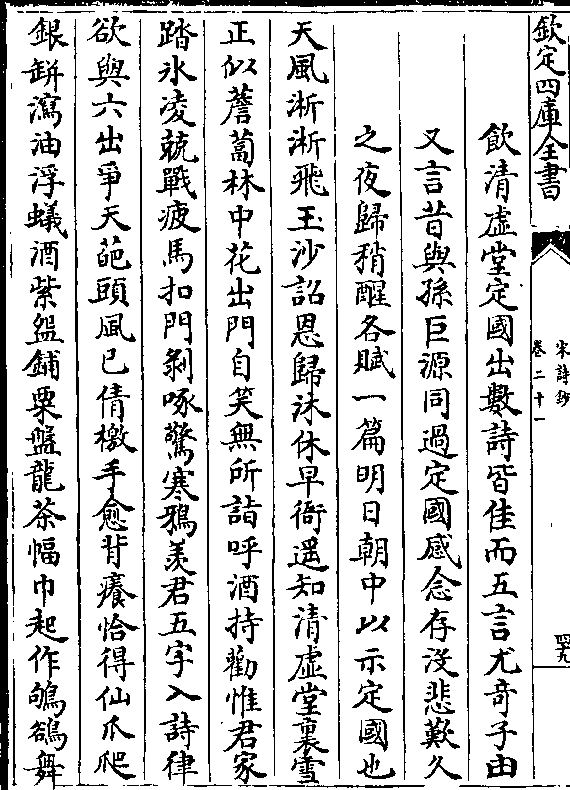 欽定四庫全書
宋詩鈔
卷二十一
飲清虛堂定國出數詩皆佳而五言尤奇子由
又言昔與孫巨源同過定國感念存沒悲歎久
之夜歸稍醒各賦一篇明日朝中以示定國也
天風淅淅飛玉沙詔恩歸沐休早衙遥知清虛堂裏雪
正似薝蔔林中花出門自笑無所詣呼酒持勸惟君家
踏氷凌兢戰疲馬扣門剥啄驚寒鴉羡君五字入詩律
欲與六出爭天葩頭風已倩檄手愈背癢恰得仙爪爬
銀缾瀉油浮蟻酒紫盌鋪粟盤龍茶幅巾起作鴝鵒舞